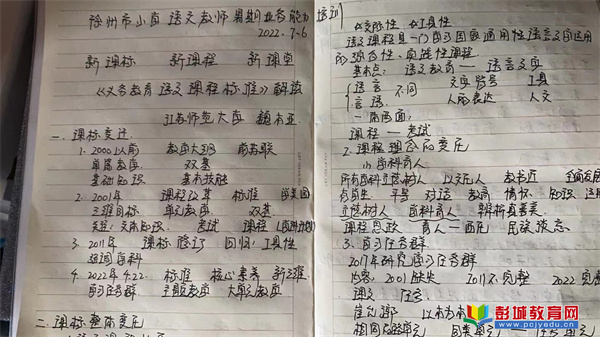 徐州市小学语文教师暑期业务能力培训
2022.7-6
新课标 新课程 新课堂
《义务教育语文课程标准》解读
江苏师范大学 魏本亚
一.课标变迁
1.2000以前 教学大纲 前苏联
基础知识 基本技能
双基
2.2001年 课程改革 标准 学美国
三维目标 单元教学 双基
考试 课程
3.2011年 课标修订 回归:工具性
4.2022.4.22. 标准 核心素养 新三维
学习任务群 主题教学 大单元教学
二.课标整体变化
人文性 工具性
语文课程是一门学习国家通用语言文字运用
的综合性、实践性课程
基本点: 语文教育——语言文字
语言 不同 文字符号 工具
言语 人的表达 人文
一体两面:
课程——考试
2.课程理念的变化
(1)学科育人
所有学科立德树人 以文化人 教书
有学生 平等 对话 教育 情怀 知识 运用
立德树人 学科育人 辨析真善美
课程思政 育人 民族
3.学习任务群
2017年研究学习任务群
内容:2001缺失 2011不完整 2022完整
课文 任务
崔峦 以本为本
相同 单元